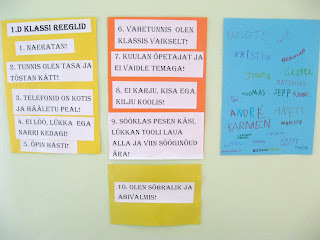 1.D KLASSI REEGLID
1. NAERATAN!
2. TUNNIS OLEN TASA JA
TÕSTAN KÄTT!
3. TELEFONID ON KOTIS
JA HÄÄLETU PEAL!
4. EI LÖÖ, LÜKKA EGA
NARRI KEDAGI!
5. ÕPIN HÄSTI!
6. VAHETUNNIS OLEN
KLASSIS VAIKSELT!
7. KUULAN ÕPETAJAT JA
EI VAIDLE TEMAGA!
8. EI KARJU, KISA EGA
KILJU KOOLIS!
9. SÖÖKLAS PESEN KÄSI,
LÜKKAN TOOLI LAUA
ALLA JA VIIN SÖÖGINÕUD
ÄRA!
10. OLEN SÕBRALIK JA
ABIVALMIS!
KRISTIN
THOMAS
ANDRE
KARMEN